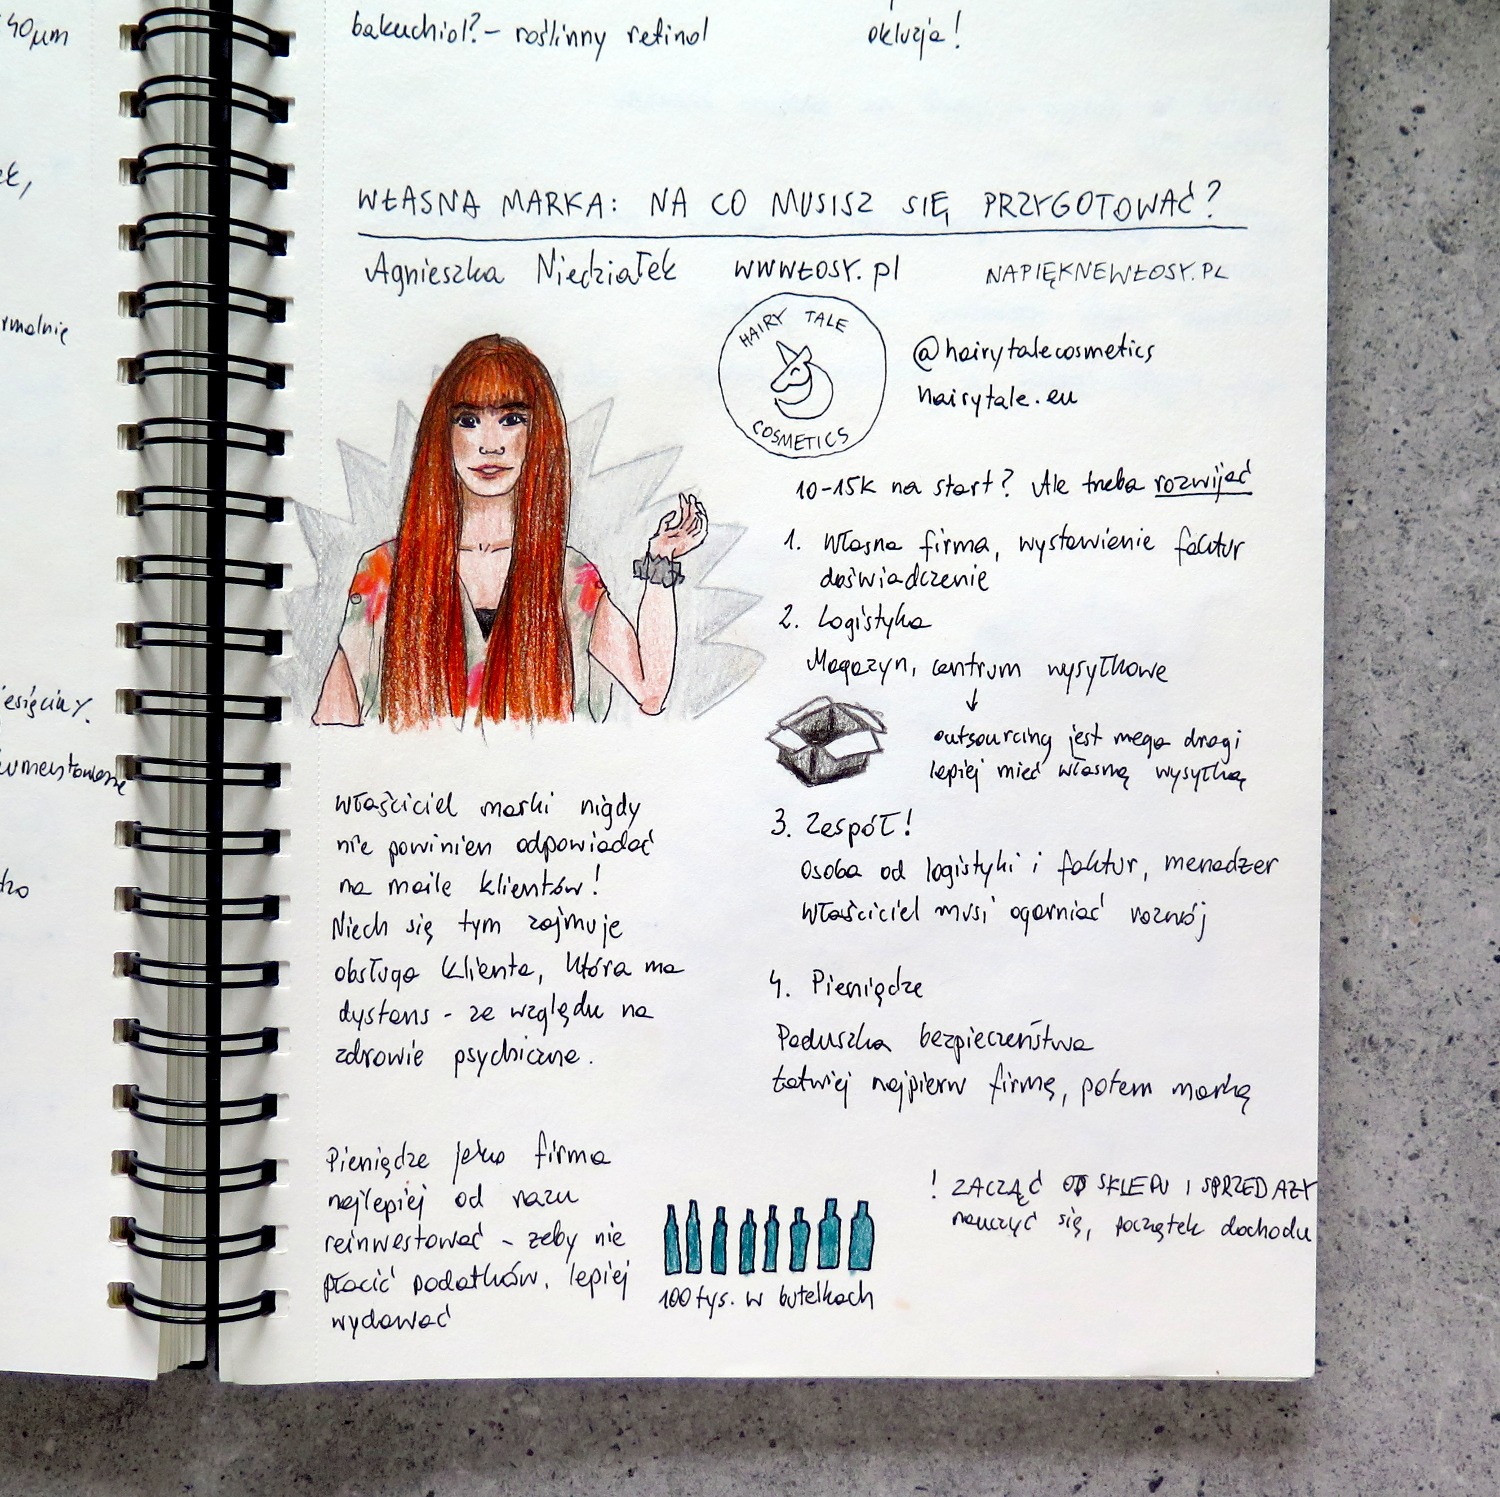 40µm
bakuchiol? - roślinny retinol
okluzja!
WŁASNA MARKA: NA CO MUSISZ SIĘ PRZYGOTOWAĆ?
Agnieszka Niedziałek
WWWŁOSY.pl
NAPIĘKNEWŁOSY.PL
HAIRY TALE
COSMETICS
@hairytalecosmetics
hairytale.eu
10-15k na start? Ale trzeba rozwijać
1. Własna firma, wystawienie faktur
doświadczenie
2. Logistyka
Magazyn, centrum wysyłkowe
↓
outsourcing jest mega drogi
lepiej mieć własną wysyłkę
3. Zespół!
osoba od logistyki i faktur, menadżer
Właściciel musi ogarniać rozwój
4. Pieniądze
Poduszka bezpieczeństwa
Łatwiej najpierw firmę, potem markę
! ZACZĄĆ OD SKLEPU I SPRZEDAŻY
nauczyć się, początek dochodu
Właściciel marki nigdy
nie powinien odpowiadać
na maile klientów!
Niech się tym zajmuje
obsługa klienta, która ma
dystans - ze względu na
zdrowie psychiczne.
Pieniądze jako firma
najlepiej od razu
reinwestować - żeby nie
płacić podatków, lepiej
wydawać
100 tys. w butelkach